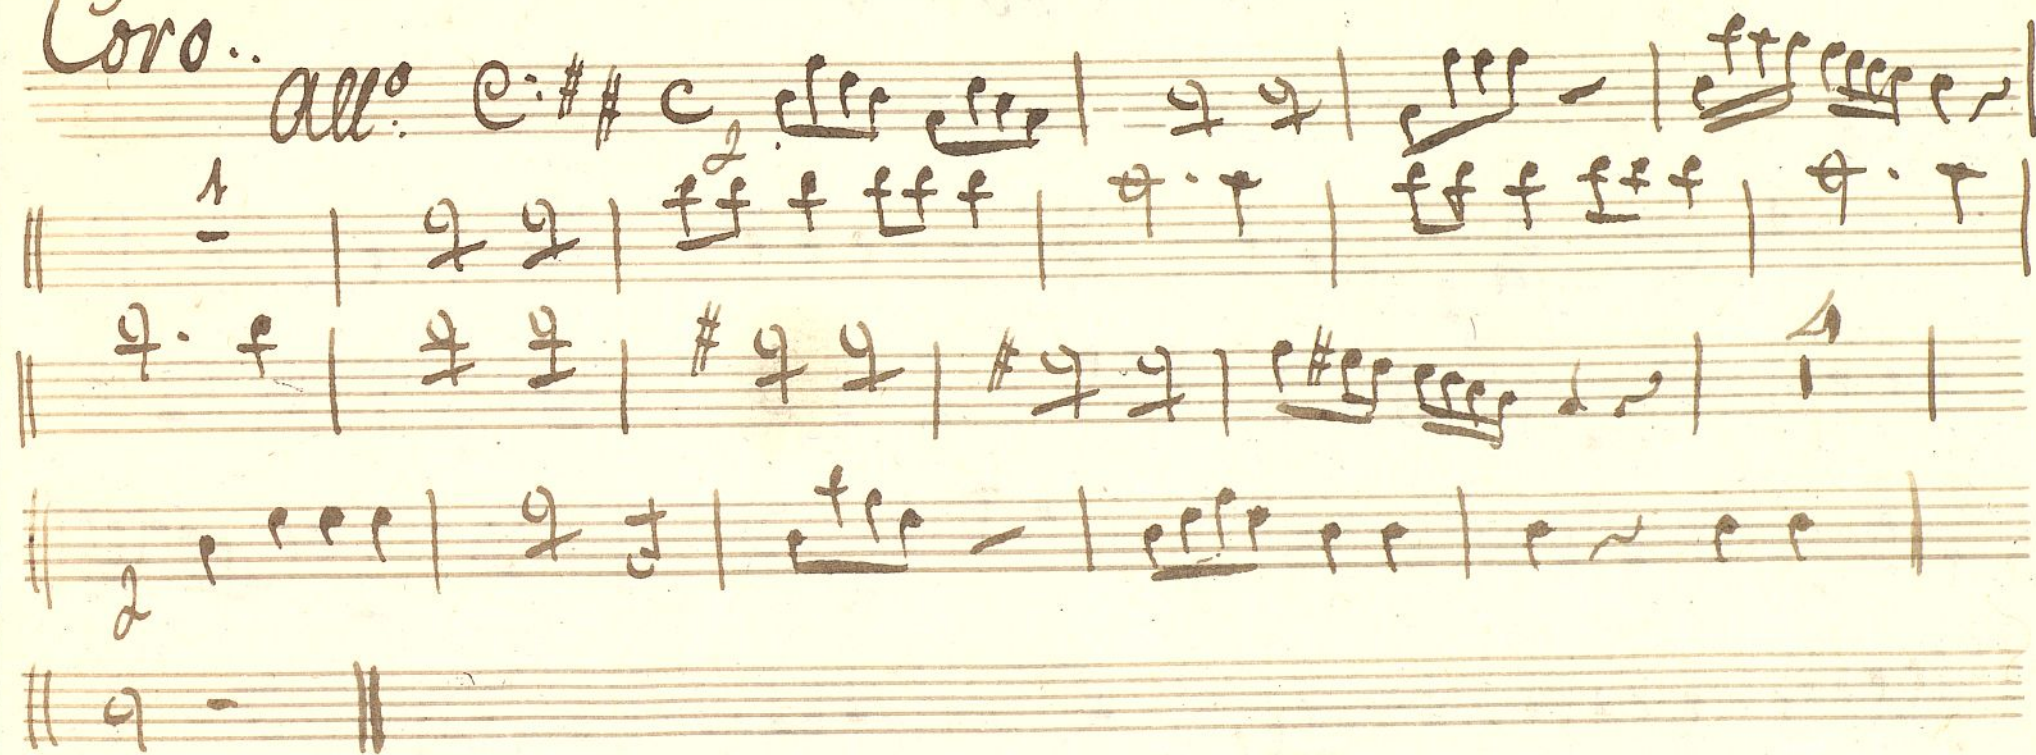 Coro..
All.º
2
1
4
2